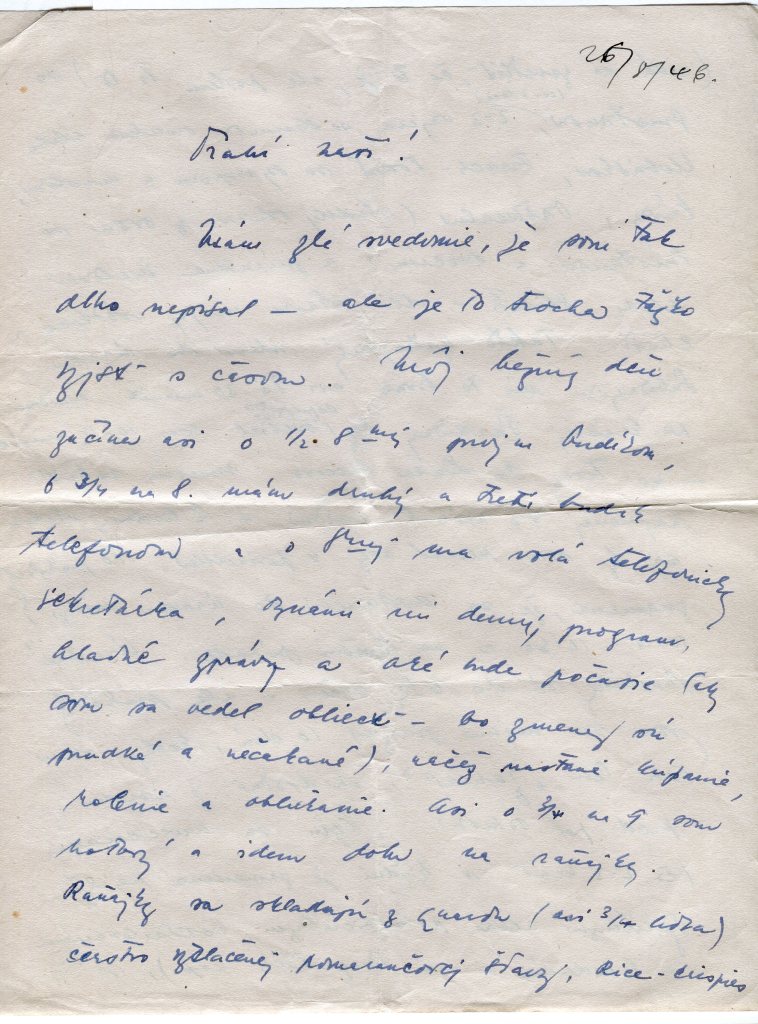 26/8/46.
Drahí naši!
Mám zlé svedomie, že som tak
dlho nepísal – ale je to trocha ťažko
výjsť s časom. Môj bežný deň
začína asi o 1/2 8 mej prvým budíkom,
o 3/4 na 8. mám druhý a tretí budík
telefonom a o 8 mej ma volá telefonicky
sekretárka, oznámi mi denný program,
hlavné zprávy a aké bude počasie (aby
som sa vedel obliecť – bo zmeny sú
prudké a nečakané), načež nastane kúpanie,
holenie a obliekanie. Asi o 3/4 na 9 som
hotový a idem dolu na raňajky.
Raňajky sa skladajú z (asi 3/4 litra)
čerstvo vytlačenej pomarančovej šťavy, Rice-crispies